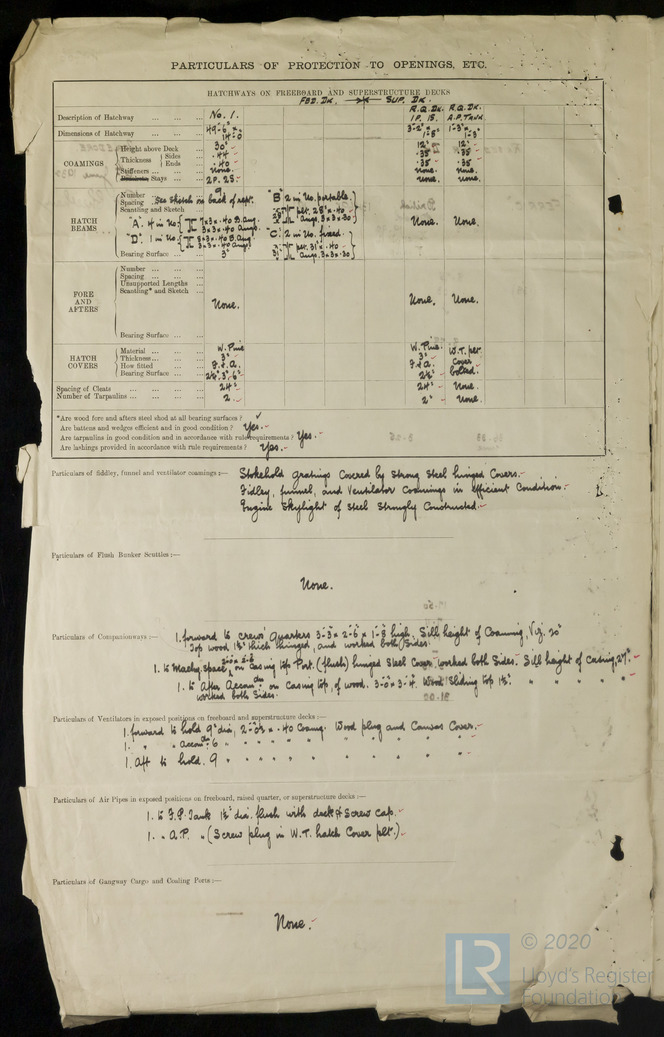 PARTICULARS OF PROTECTION TO OPENINGS, ETC.
HATCHWAYS ON FREEBOARD AND SUPERSTRUCTURE DECKS
FBD. DK. SUP. DK.
Description of Hatchway ... ... ... No. 1. R.Q. DK. 1 P. 1 S. R.Q. DK. A.P. TANK
Dimensions of Hatchway ... ... 49'-6" x 14'-0 3'-2" x 1'-8" 1'-3" x 1'-3"
COAMINGS
Height above Deck ... 30" 12" 12"
Thickness Sides ... .44 .35 .35
Ends ... .40 .35 .35
Stiffeners ... ... ... None. None. None.
Stays ... 2P. 2S. None. None.
HATCH BEAMS
Number ... 9
Spacing ... See sketch on back of rept.
Scantling and Sketch
"A". 4 in No.
"D". 1 in No.
"B" 2 in No. portable.
"C" 2 in No. fixed.
None. None.
Bearing Surface ... ... 3" 3½"
FORE AND AFTERS
Number ... ... ...
Spacing ... ... ...
Unsupported Lengths ...
Scantling* and Sketch ...
None. None. None.
Bearing Surface ... ...
HATCH COVERS
Material ... ... ... W. Pine W. Pine W.T. plt.
Thickness ... ... ... 3" 3" Cover
How fitted ... ... F. & A. F. & A. bolted.
Bearing Surface ... ... 2½" 3" 6" 2½"
Spacing of Cleats ... ... ... ... 24" 24" None
Number of Tarpaulins ... ... ... ... 2 2 None.
*Are wood fore and afters steel shod at all bearing surfaces?
Are battens and wedges efficient and in good condition? Yes.
Are tarpaulins in good condition and in accordance with rule requirements? Yes.
Are lashings provided in accordance with rule requirements? Yes.
Particulars of fiddley, funnel and ventilator coamings:— Stokehold gratings Covered by Strong Steel hinged Covers.
Fidley, funnel, and Ventilator Coamings in efficient Condition.
Engine Skylight of Steel Strongly Constructed.
Particulars of Flush Bunker Scuttles:—
None.
Particulars of Companionways:— 1. forward to crews' quarters 3'-3" x 2'-6" x 1'-8" high. Sill height of Coaming, Viz. 20"
Top wood 1½" thick hinged, and worked both Sides.
1. to Machy. space on Casing top Port. (flush) hinged Steel Cover, worked both Sides. Sill height of Casing, 27".
1. to After Accom. on Casing top, of wood. 3'-0" x 3'-4". Wood Sliding top 1½". " " "
worked both Sides.
Particulars of Ventilators in exposed positions on freeboard and superstructure decks:—
1. forward to hold 9" dia, 2'-0" x .40 Coamg. Wood plug and Canvas Cover.
1. " " Accom. 6 " " " " " " "
1. Aft to hold. 9 " " " " " " "
Particulars of Air Pipes in exposed positions on freeboard, raised quarter, or superstructure decks:—
1. to F.P. Tank 1½" dia. flush with deck & Screw Cap.
1. " A.P. " (Screw plug in W.T. hatch Cover plt.)
Particulars of Gangway Cargo and Coaling Ports:—
None.
LR
© 2020
Lloyd's Register
Foundation